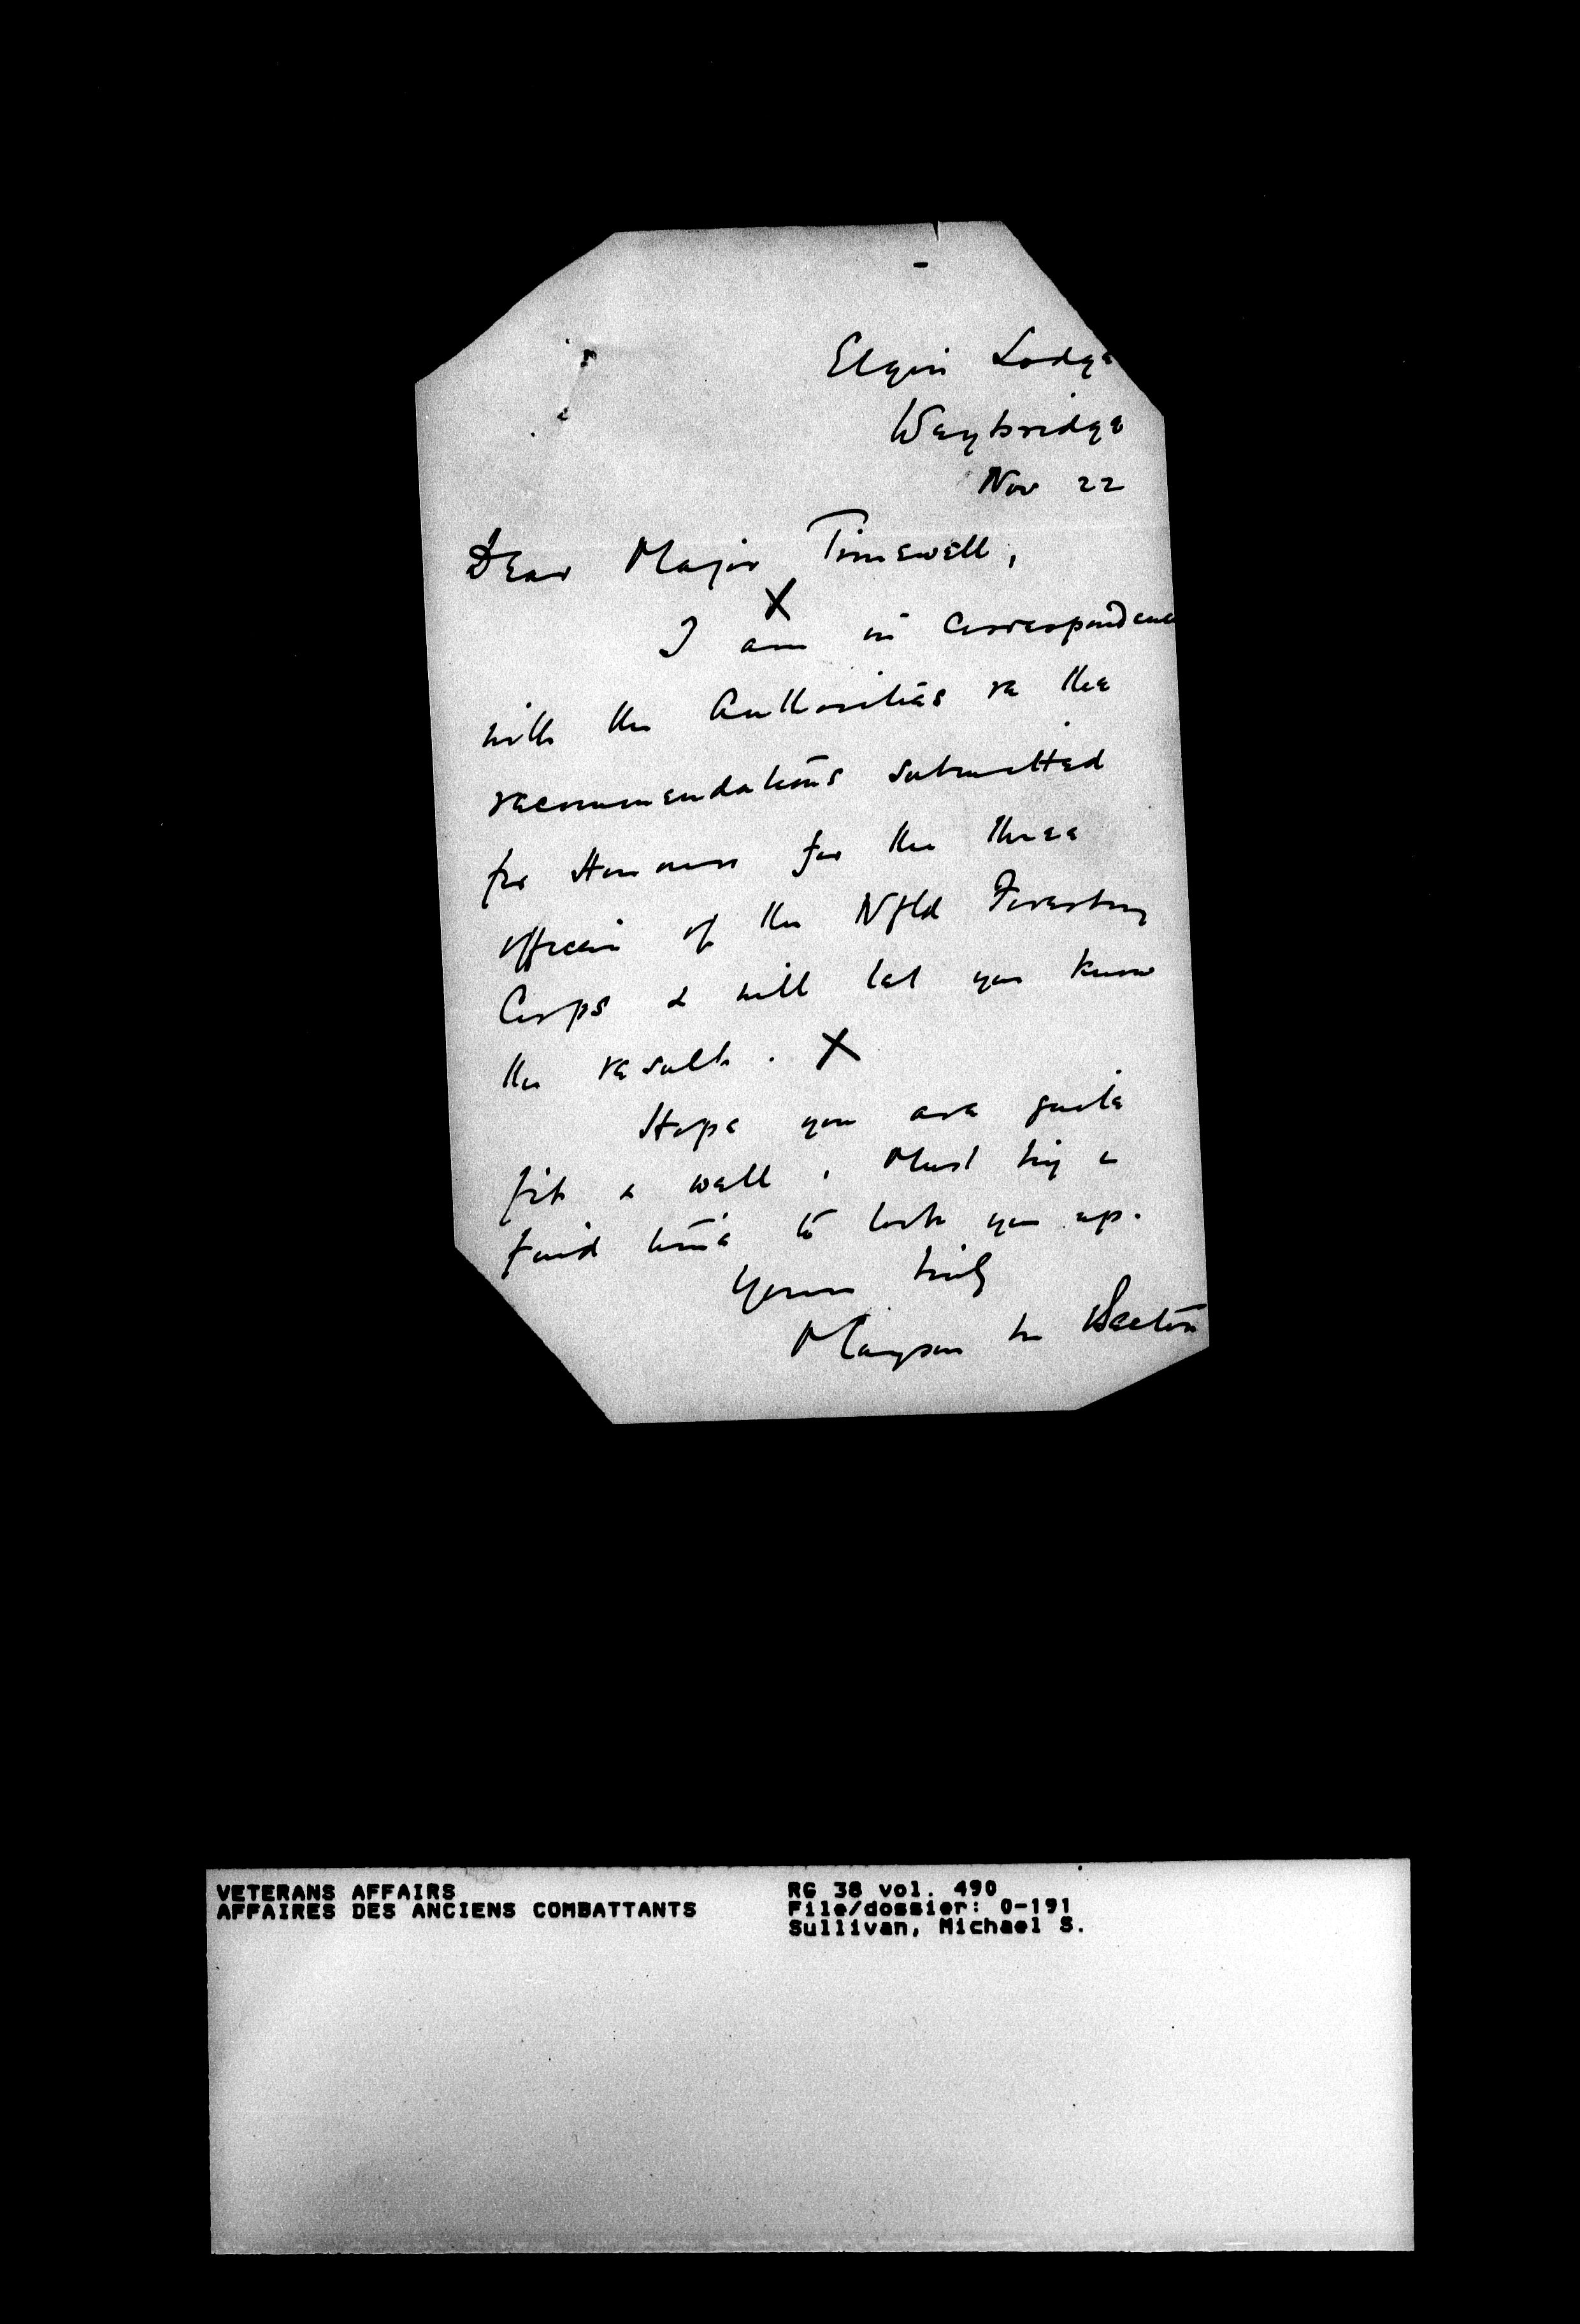 Elgin Lodge
Weybridge
Nov 22
Dear Major Timewell,
X
I am in correspondence
with the Authorities re the
recommendations submitted
for Honours for the three
officers of the Nfld Forestry
Corps & will let you know
the result. X
Hope you are quite
fit & well. Must try &
find time to look you up.
Yours truly
Mayson M Beeton
VETERANS AFFAIRS
AFFAIRES DES ANCIENS COMBATTANTS
RG 38 vol. 490
File/dossier: 0-191
Sullivan, Michael S.